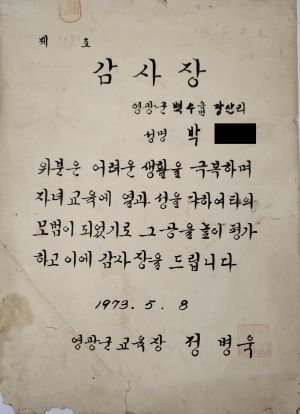 제 호
감사장
영광군 백수읍 장산리
성명 박
위분은 어려운 생활을 극복하며
자녀교육에 열과 성을 다하여 타의
모범이 되었기로 그 공을 높이 평가
하고 이에 감사장을 드립니다
1973. 5. 8
영광군교육장 정병욱